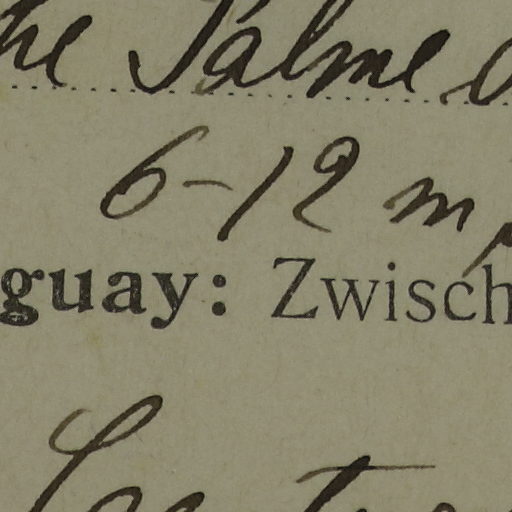 he Palme
6-12 m
guay: Zwisch